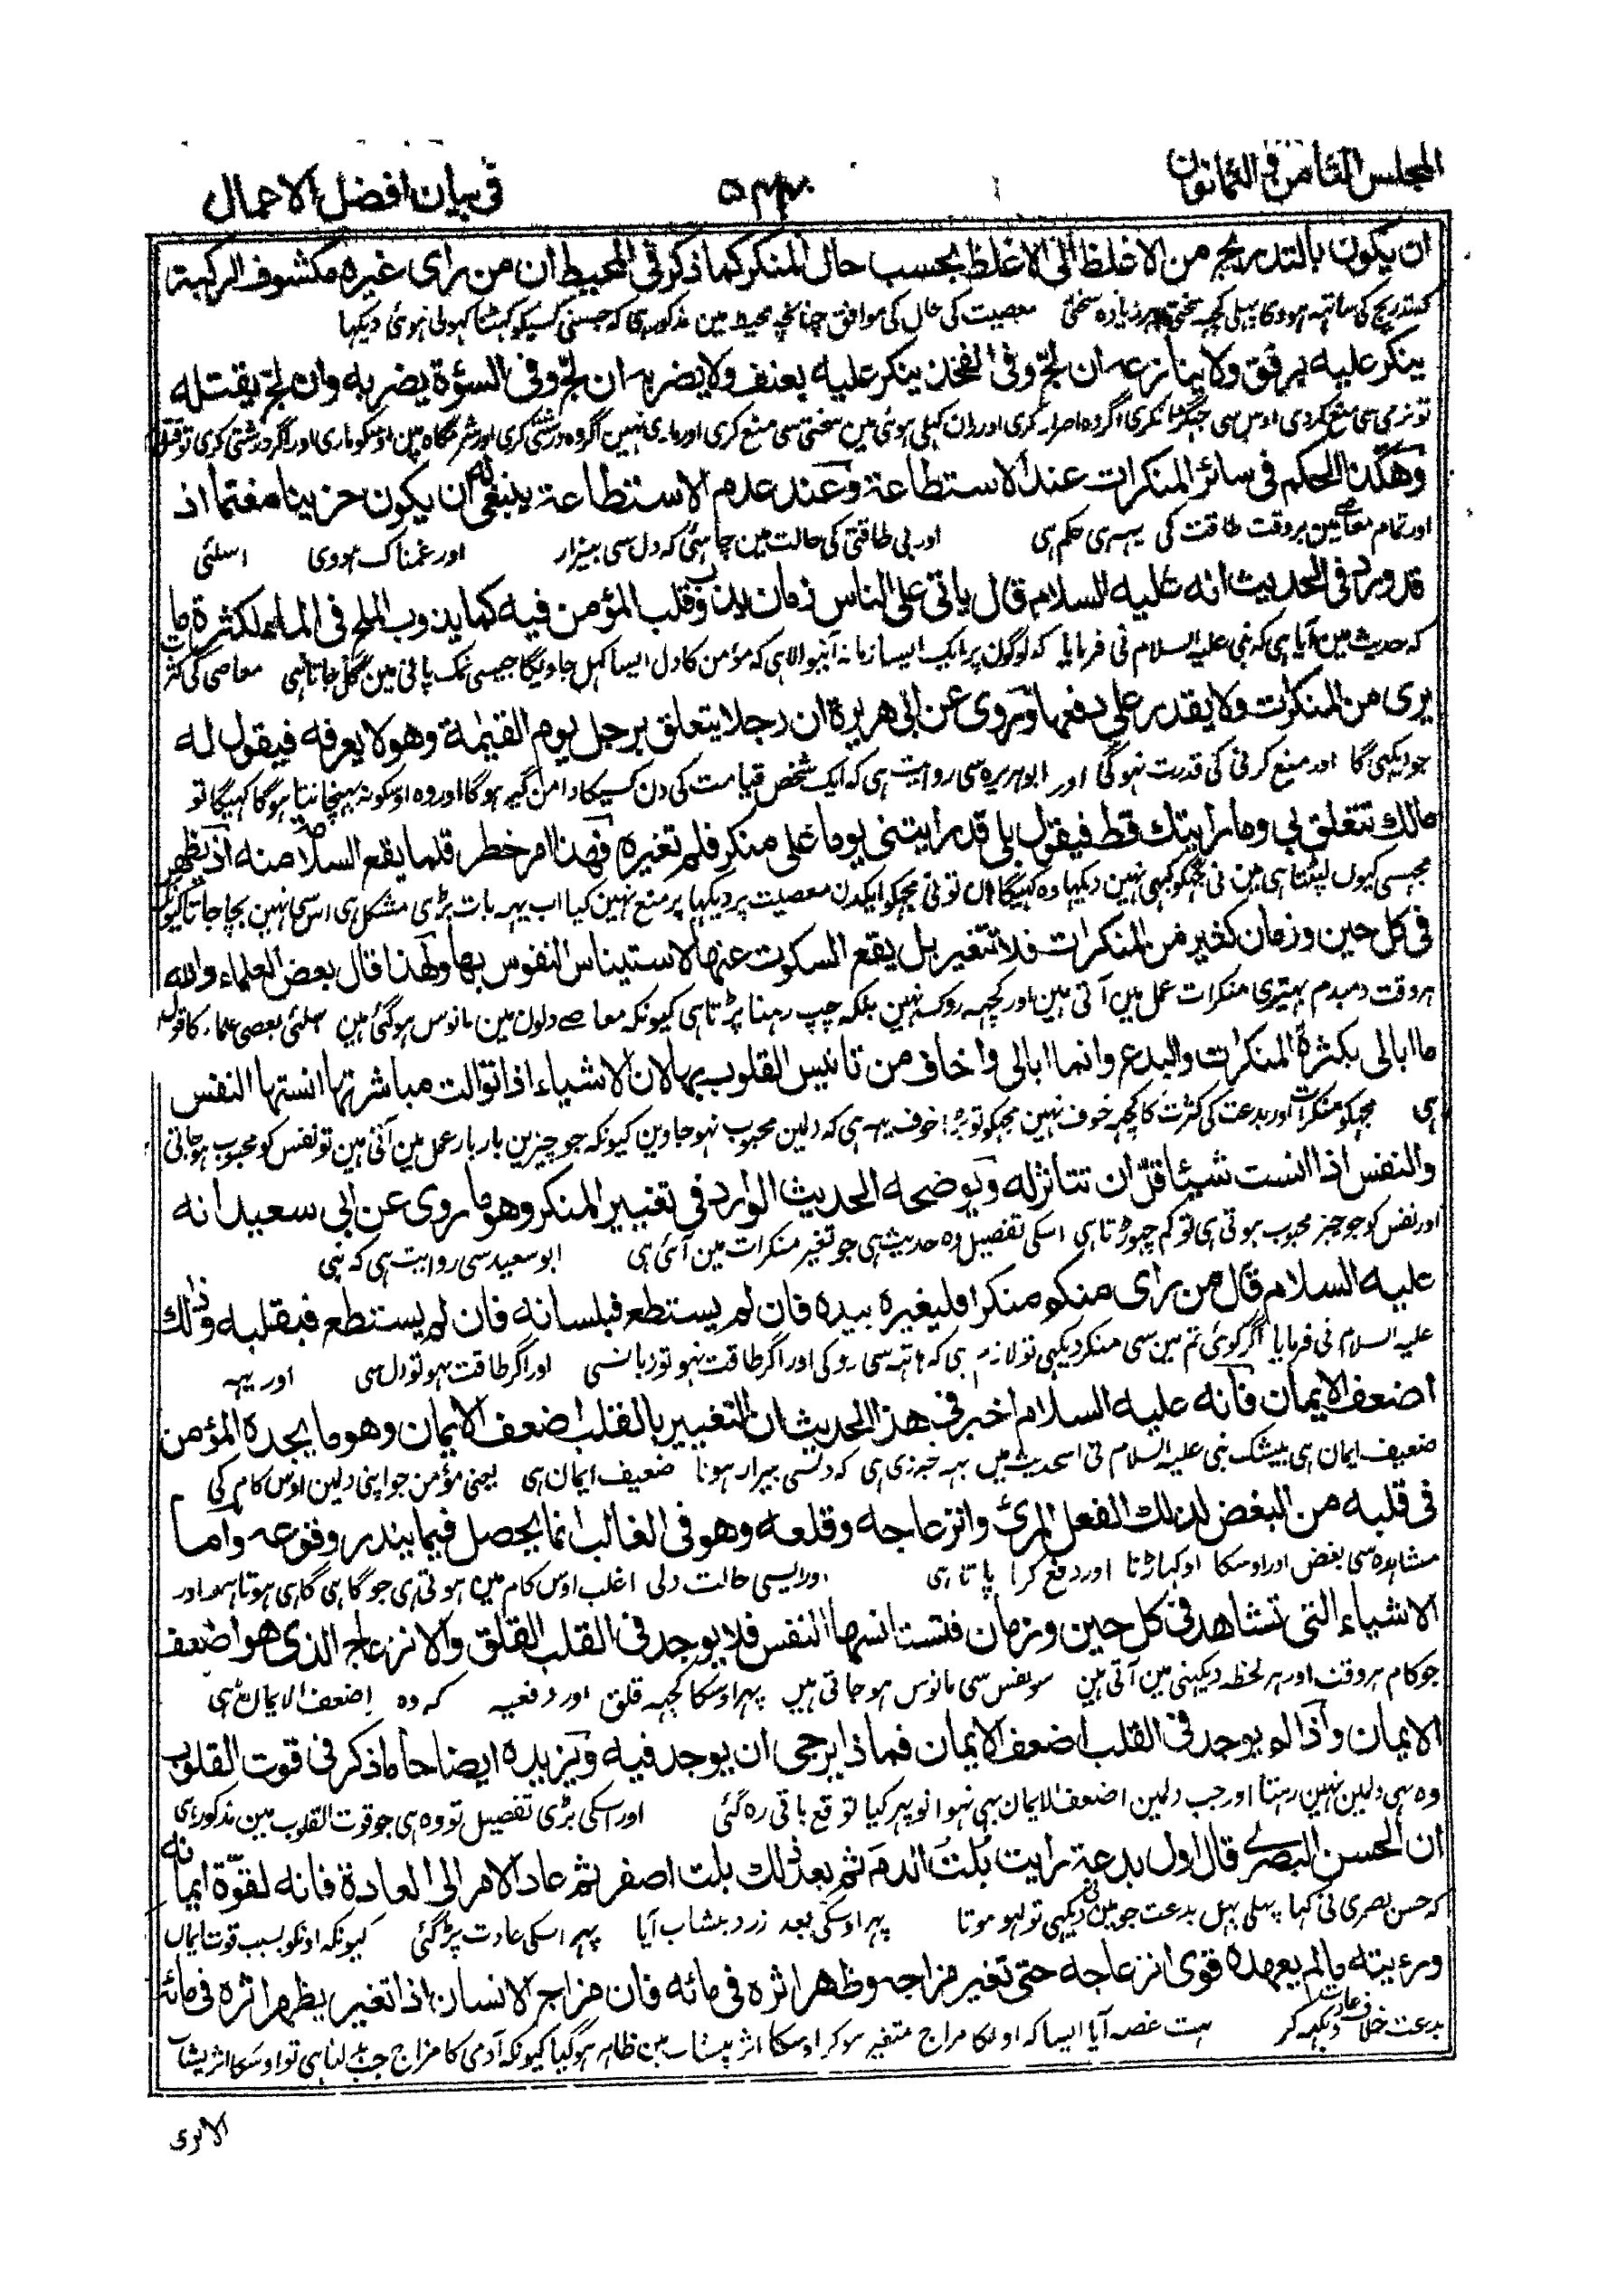 المجلس الثامن و الثمانون
۵۴۴
فى بيان افضل الاعمال
ان يكون بالتدريج من الاغلظ الى الاغلظ بحسب حال المنكر كما ذكر فى المحيط ان من راى غيره مكشوف الركبة
كه تدريج كى ساتهه هووى پہلی کچہہ سختی پهر زیاده سختی معصیت کی حال کی موافق چنانچه محیط مین مذکور ہی که جسنی کسیکو گہٹنا کہولی ہوئی دیکہا
ينكر عليه برفق ولا ينازعه ان لجّ وفى الفخذ ينكر عليه بعنف ولا يضربه ان لجّ وفى السؤة يضربه وان لجّ يقتله
تو نرمی سی منع کردی اوس سی جهگڑا نکری اگر وه اصرار کری اور ران کہلی ہوئی مین سختی سی منع کری اور ماری نہین اگر وه درشتی کری اور شرمگاه مین اوسکو ماری اور اگر درشتی کری تو قتل
وهكذا الحكم فى سائر المنكرات عند الاستطاعة وعند عدم الاستطاعة ينبغى له ان يكون حزينا مغتما اذ
اور تمام معاصی مین بر وقت طاقت کی یہی حکم ہی اور بی طاقتی کی حالت مین چاہئی که دل سی بیزار اور غمناک ہووی اسلئی
قد ورد فى الحديث انه عليه السلام قال ياتى على الناس زمان يذوب قلب المؤمن فيه كما يذوب الملح فى الماء لكثرة ما
که حدیث مین آیا ہی که نبی علیہ السلام نی فرمایا که لوگون پر ایک ایسا زمانه آنیوالا ہی که مؤمن کا دل ایسا گہل جاویگا جیسی نمک پانی مین گهل جاتا ہی معاصی کی کثر
يرى من المنكرات ولا يقدر على دفعها وروى عن ابى هريرة ان رجلا يتعلق برجل يوم القيٰمة وهو لا يعرفه فيقول له
جو دیکہی گا اور منع کرنی کی قدرت نہوگی اور ابو ہریره سی روایت ہی که ایک شخص قیامت کی دن کسیکا دامن گیر ہوگا اور وه اوسکو نه پہچانتا ہوگا کہیگا تو
مالك تتعلق بى وما رايتك قط فيقول بلى قد رايتنى يوما على منكر فلم تغيره فهذا امر خطر قلما يقع السلامة منه اذ يظهر
مجہسی کیون لپٹتا ہی مین نی تجهکو کبهی نہین دیکہا وه کہیگا ہان تو نی مجهکو ایکدن معصیت پر دیکہا پر منع نہین کیا اب یہہ بات بڑی مشکل ہی اس سی نہین بچا جاتا کیونکه
فى كل حين وزمان كثير من المنكرات فلا تتغير بل يقع السكوت عنها لاستيناس النفوس بها ولهذا قال بعض العلماء والله
ہر وقت دمبدم بہتیری منکرات عمل مین آتی ہین اور کچہہ روک نہین بلکه چپ رہنا پڑتا ہی کیونکه معاصی دلون مین مانوس ہوگئی ہین اسلئی بعضی علماء کا قول
ما ابالى بكثرة المنكرات والبدع وانما ابالى واخاف من تانيس القلوب بها لان الاشياء اذا توالت مباشرتها انستها النفس
ہی مجهکو منکرات اور بدعت کی کثرت کا کچہہ خوف نہین مجهکو تو بڑا خوف یہہ ہی که دلین محبوب نہو جاوین کیونکه جو چیزین بار بار عمل مین آتی ہین تو نفس کو محبوب ہو جاتی
والنفس اذا انست شيئا قلّ ان تتاثر له ويوضحه الحديث الوارد فى تغيير المنكر وهو ما روى عن ابى سعيد انه
اور نفس کو جو چیز محبوب ہوتی ہی تو کم چہوڑتا ہی اسکی تفصیل وه حدیث ہی جو تغیر منکرات مین آئی ہی ابو سعید سی روایت ہی که نبی
عليه السلام قال من راى منكم منكرا فليغيره بيده فان لم يستطع فبلسانه فان لم يستطع فبقلبه وذلك
علیہ السلام نی فرمایا اگر کوئی تم مین سی منکر دیکہی تو لازم ہی که ہاتہہ سی روکی اور اگر طاقت نہو تو زبانسی اور اگر طاقت نہو تو دل سی اور یہہ
اضعف الايمان فانه عليه السلام اخبر فى هذا الحديث ان التغيير بالقلب اضعف الايمان وهو ما يجده المؤمن
ضعیف ایمان ہی بیشک نبی علیہ السلام نی اسحدیث مین یہہ خبر دی ہی که دلسی بیزار ہونا ضعیف ایمان ہی یعنی مؤمن جو اپنی دلین اوس کام کی
فى قلبه من البغض لذلك الفعل المرئ وانزعاجه وقلعه وهو فى الغالب انما يحصل فيما يندر وقوعه واما
مشاہده سی بغض اور اوسکا اوکہاڑنا اور دفع کرنا پاتا ہی اور ایسی حالت دلی اغلب اوس کام مین ہوتی ہی جو گاہی گاہی ہوتا ہو اور
الاشياء التى تشاهد فى كل حين وزمان فتستانسها النفس فلا يوجد فى القلب القلق والانزعاج الذى هو اضعف
جو کام ہر وقت اور ہر لحظه دیکہنی مین آتی ہین سو نفس سی مانوس ہو جاتی ہین پہر اوسکا کچہہ قلق اور دفعیه که وه اضعف الایمان ہی
الايمان واذا لم يوجد فى القلب اضعف الايمان فماذا يرجى ان يوجد فيه ويزيده ايضاحا ما ذكر فى قوت القلوب
وه ہی دلین نہین رہتا اور جب دلمین اضعف الایمان بہی نہوا تو پہر کیا توقع باقی ره گئی اور اسکی بڑی تفصیل تو وه ہی جو قوت القلوب مین مذکور ہی
ان الحسن البصرى قال اول بدعة رايت بُلتُ الدم ثم بعد ذلك بلت اصفر ثم عاد الامر الى العادة فانه لقوّة ايمانه
که حسن بصری نی کہا پہلی پہل بدعت جو مین نی دیکہی تو لہو موتا پہر اوسکی بعد زرد پیشاب آیا پہر اسکی عادت پڑ گئی کیونکه اونکو بسبب قوت ایمان
ورؤيته ما لم يعهده قوى انزعاجه حتى تغير مزاجه وظهر اثره فى مائه فان مزاج الانسان اذا تغير يظهر اثره فى مائه
بدعت خلاف عادت دیکہہ کر بہت غصه آیا ایسا که اونکا مزاج متغیر ہوکر اوسکا اثر پیشاب مین ظاہر ہوگیا کیونکه آدمی کا مزاج جب بدلتا ہی تو اوسکا اثر پیشاب
الا ترى